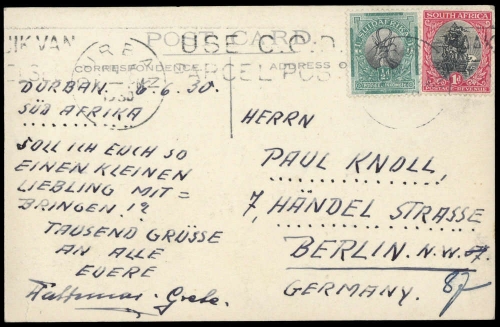 POST CARD.
UIK VAN
USE C.O.D.
PARCEL POST
CORRESPONDENCE
ADDRESS O
SUIDAFRIKA
SOUTH AFRICA
1D
POSTAGE-REVENUE
DURBAN. 6.6.30.
SÜD AFRIKA
SOLL ICH EUCH SO
EINEN KLEINEN
LIEBLING MIT=
BRINGEN!?
TAUSEND GRÜSSE
AN ALLE
EUERE
Grete.
HERRN
PAUL KNOLL,
7, HÄNDEL STRASSE
BERLIN. N.W. 87.
GERMANY. 87